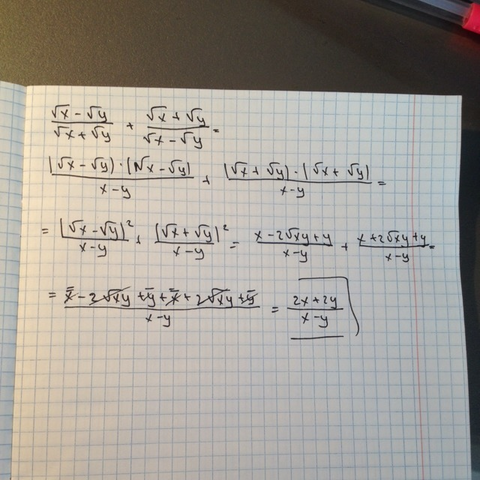 (√x - √y)/(√x + √y) + (√x + √y)/(√x - √y) =
((√x - √y)·(√x - √y))/(x-y) + ((√x + √y)·(√x + √y))/(x-y) =
= (√x - √y)²/(x-y) + (√x + √y)²/(x-y) = (x - 2√xy + y)/(x-y) + (x + 2√xy + y)/(x-y) =
= (x - 2√xy + y + x + 2√xy + y)/(x-y) = (2x + 2y)/(x-y)